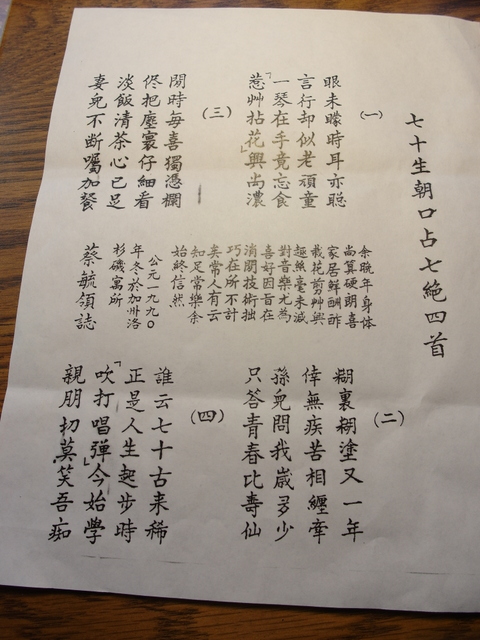 七十生朝口占七絕四首
(一)
眼未矇時耳亦聪
言行却似老頑童
一琴在手竟忘食
「惹艸拈花」興尚濃
(二)
糊裏糊塗又一年
倖無疾苦相纏牽
孫兒問我歲多少
只答青春比壽仙
(三)
閒時每喜獨憑欄
侭把塵寰仔細看
淡飯清茶心已足
妻兒不斷囑加餐
(四)
誰云七十古来稀
正是人生起步時
「吹打唱彈」今始學
親朋切莫笑吾痴
余晚年身体
尚算硬朗喜
家居鮮酬酢
栽花剪艸興
趣絲毫未減
對音樂尤為
喜好因旨在
消閒技術拙
巧在所不計
矣常人有云
知足常樂余
始終信然
公元一九九〇
年冬於加州洛
杉磯寓所
蔡毓領誌